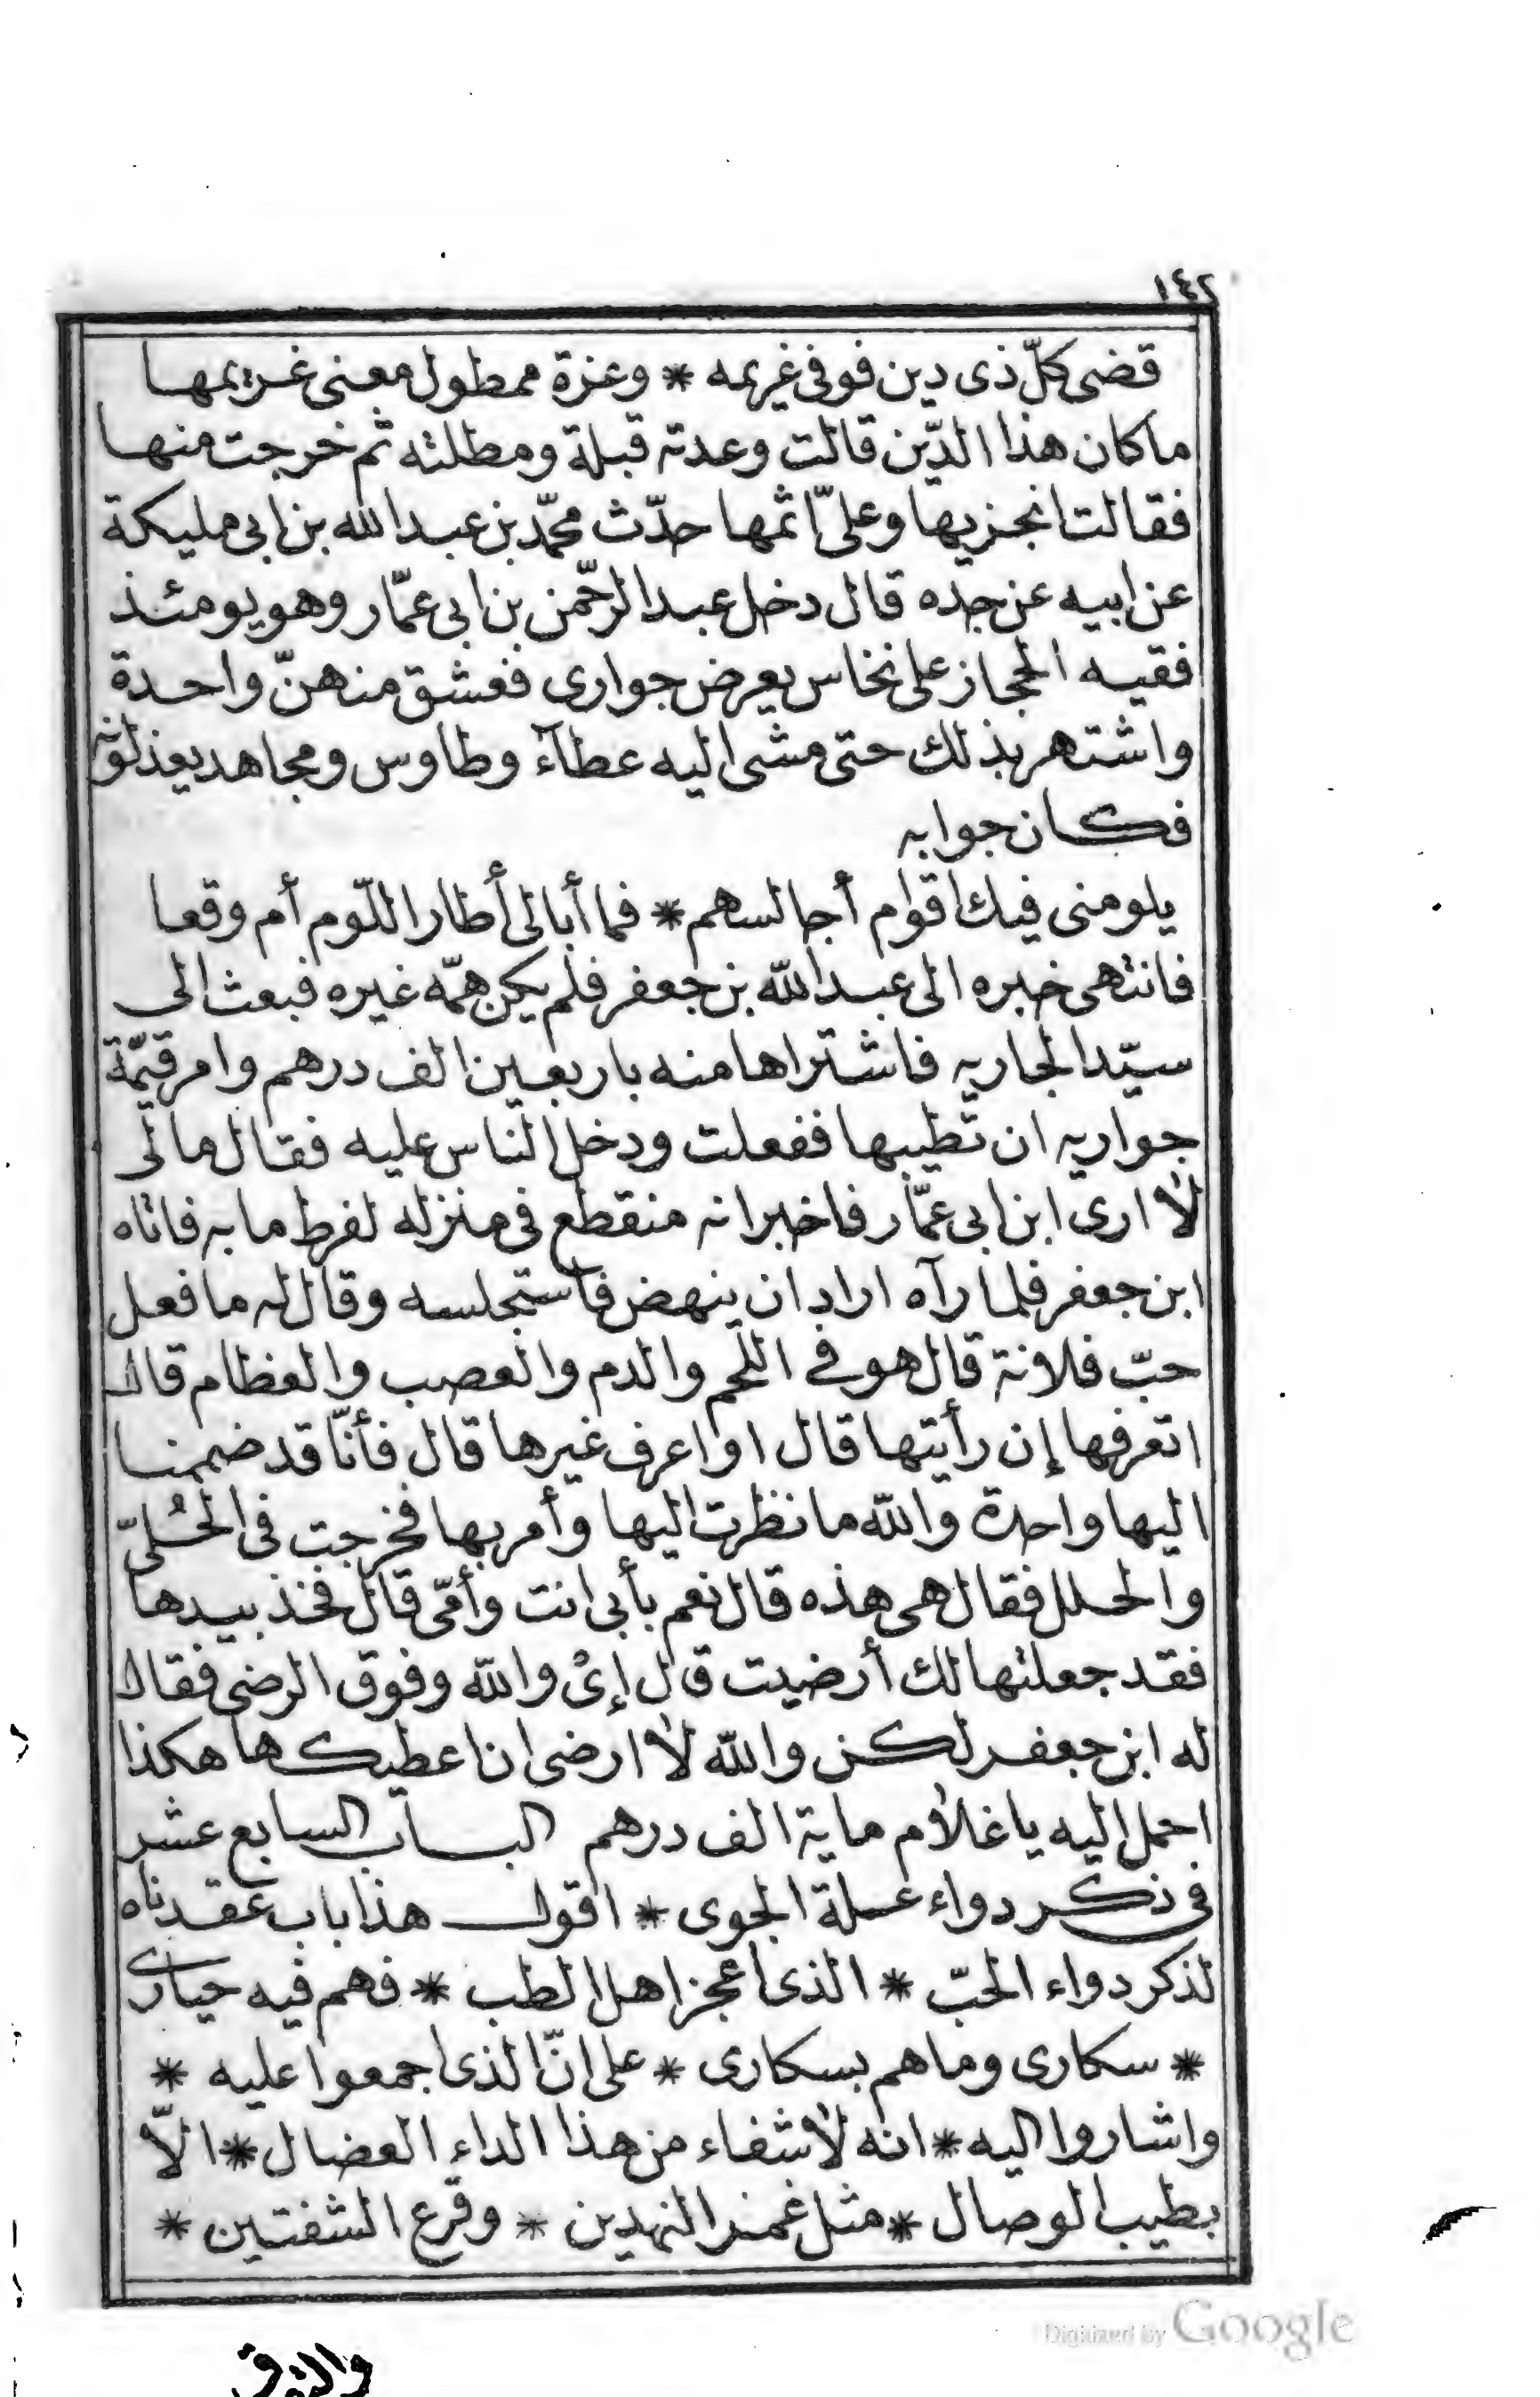 ١٤٢
قضى كلّ ذى دين فوفى غريمه * وعزة ممطول معنى غريمها
ما كان هذا الدّين قالت وعدته قبلة ومطلته ثم خرجت منها
فقالت انجزيها وعلىّ اثمها حدّث محمّد بن عبد الله بن ابى مليكة
عن ابيه عن جده قال دخل عبد الرحّمن بن ابى عمّار وهو يومئذ
فقيه الحجاز على نخاس يعرض جوارى فعشق منهنّ واحدة
واشتهر بذلك حتى مشى اليه عطآء وطاوس ومجاهد يعذلونه
فكان جوابه
يلومنى فيك اقوام أجالسهم * فما أبالى أطار اللّوم أم وقعا
فانتهى خبره الى عبد اللّه بن جعفر فلم يكن همّه غيره فبعث الى
سيّد الجاريه فاشتراها منه باربعين الف درهم وامر قيّمة
جواريه ان تطيبها ففعلت ودخل الناس عليه فقال مالى
لا ارى ابن ابى عمّار فاخبر انه منقطع فى منزله لفرط ما به فاتاه
ابن جعفر فلما رآه اراد ان ينهض فاستجلسه وقال له ما فعل
حبّ فلانة قال هو فى اللّحم والدم والعصب والعظام قال
اتعرفها إن رأيتها قال او اعرف غيرها قال فأنّا قد ضممنا
اليها واحدة واللّه ما نظرت اليها وأمر بها فخرجت فى الحُلىّ
والحلل فقال هى هذه قال نعم بأبى انت وأمّى قال فخذ بيدها
فقد جعلتها لك أرضيت قال إىْ واللّه وفوق الرضى فقال
له ابن جعفر لكن واللّه لا ارضى ان اعطيكها هكذا
احمل اليه يا غلام ماية الف درهم الباب السابع عشر
فى ذكر دواء علة الجوى * اقول هذا باب عقدناه
لذكر دواء الحبّ * الذى اعجز اهل الطب * فهم فيه حيارى
* سكارى وما هم بسكارى * على انّ الذى اجمعوا عليه *
واشاروا اليه * انه لا شفاء من هذا الداء العضال * الاّ
بطيب الوصال * مثل غمز النهدين * وقرع الشفتين *
Digitized by Google